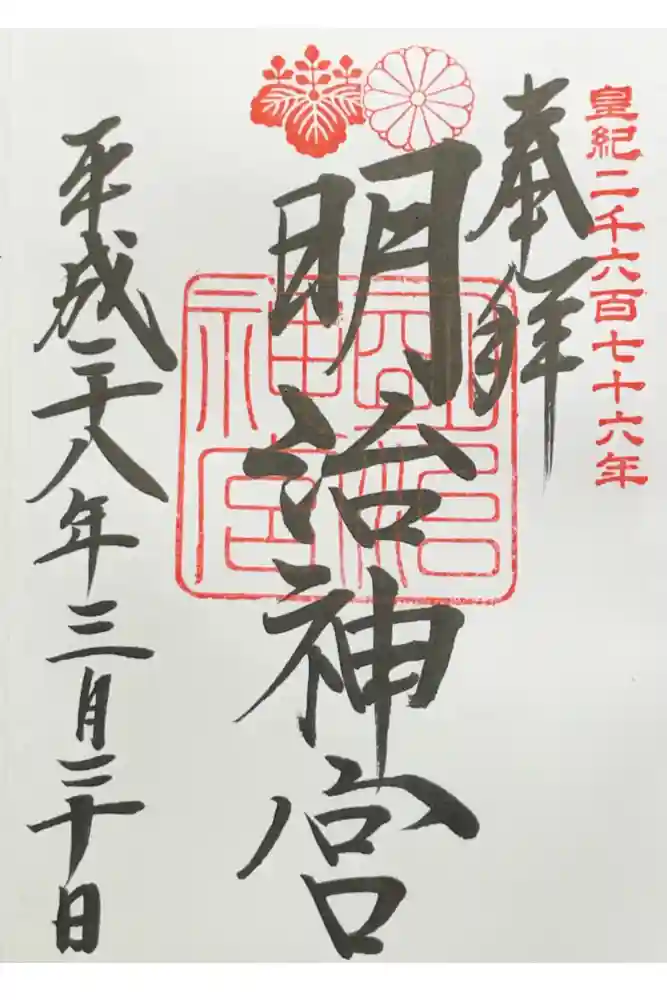 皇紀二千六百七十六年
奉拝
明治神宮
平成二十八年三月三十日
明治
神宮